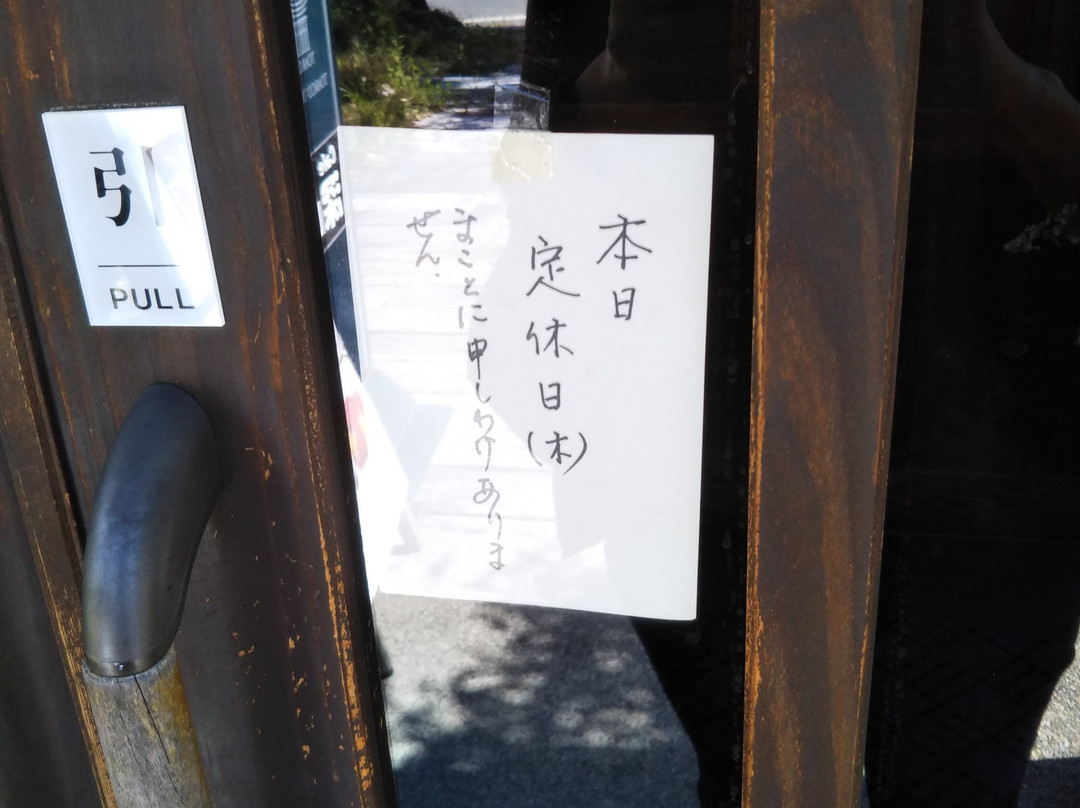 引
PULL
本日
定休日(木)
まことに申しわけありま
せん.